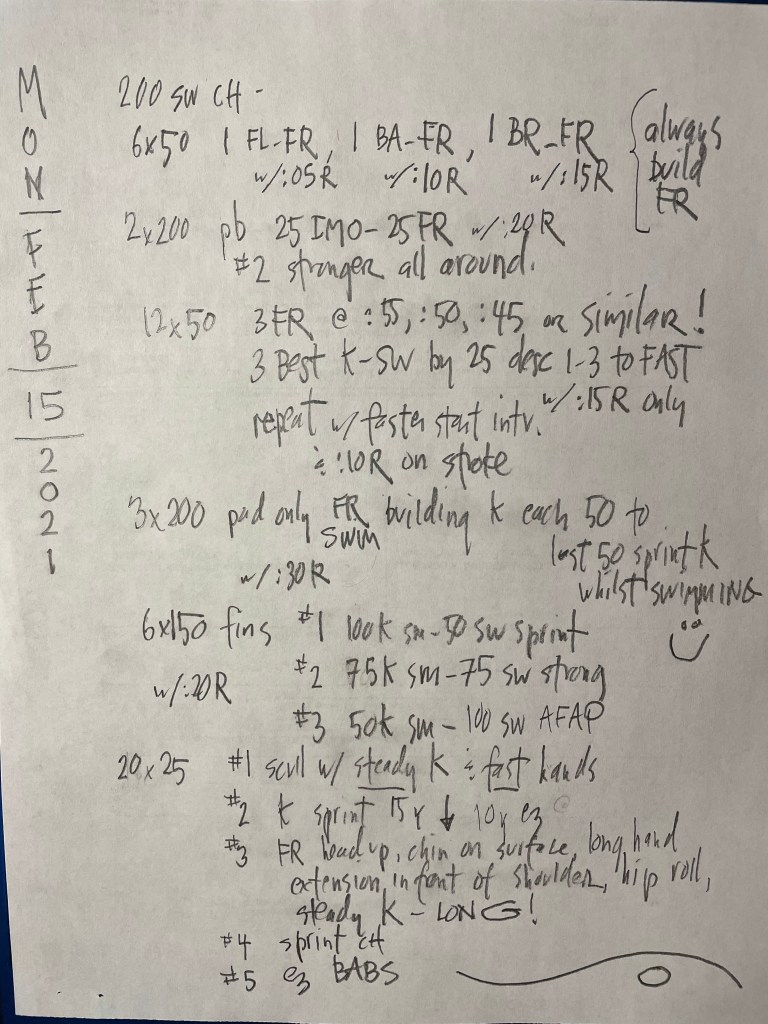 MON
FEB
15
2021
200 SW CH -
6x50 1 FL-FR, 1 BA-FR, 1 BR-FR
w/:05R w/:10R w/:15R
always
build
FR
2x200 pb 25 IMO-25FR w/:20R
#2 stronger all around.
12x50 3 FR @ :55, :50, :45 or similar!
3 Best K-SW by 25 desc 1-3 to FAST
w/:15R only
repeat w/ faster start intv.
& :10R on stroke
3x200 pad only FR building K each 50 to
SWIM
last 50 sprint K
whilst SWIMMING
w/:30R
6x150 fins #1 100K sm-50 sw sprint
w/:20R #2 75K sm-75 sw strong
#3 50K sm-100 sw AFAP
20x25 #1 scull w/ steady K & fast hands
#2 K sprint 15y ↓ 10y ez
#3 FR head up, chin on surface, long hand
extension in font of shoulder, hip roll,
steady K - LONG!
#4 sprint CH
#5 ez BABS